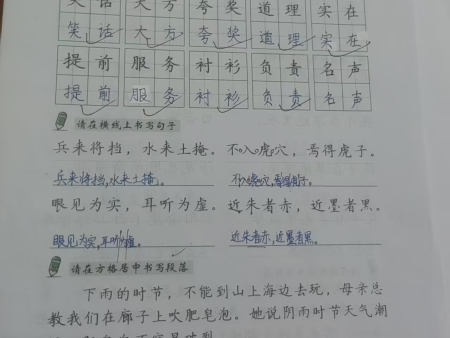 笑话 大方 夸奖 道理 实在
笑话 大方 夸奖 道理 实在
提前 服务 衬衫 负责 名声
提前 服务 衬衫 负责 名声
请在横线上书写句子
兵来将挡，水来土掩。不入虎穴，焉得虎子。
兵来将挡,水来土掩。
眼见为实，耳听为虚。近朱者赤，近墨者黑。
眼见为实,耳听为虚。 近朱者赤,近墨者黑。
请在方格居中书写段落
下雨的时节，不能到山上海边去玩，母亲总
教我们在廊子上吹肥皂泡。她说阴雨时节天气潮